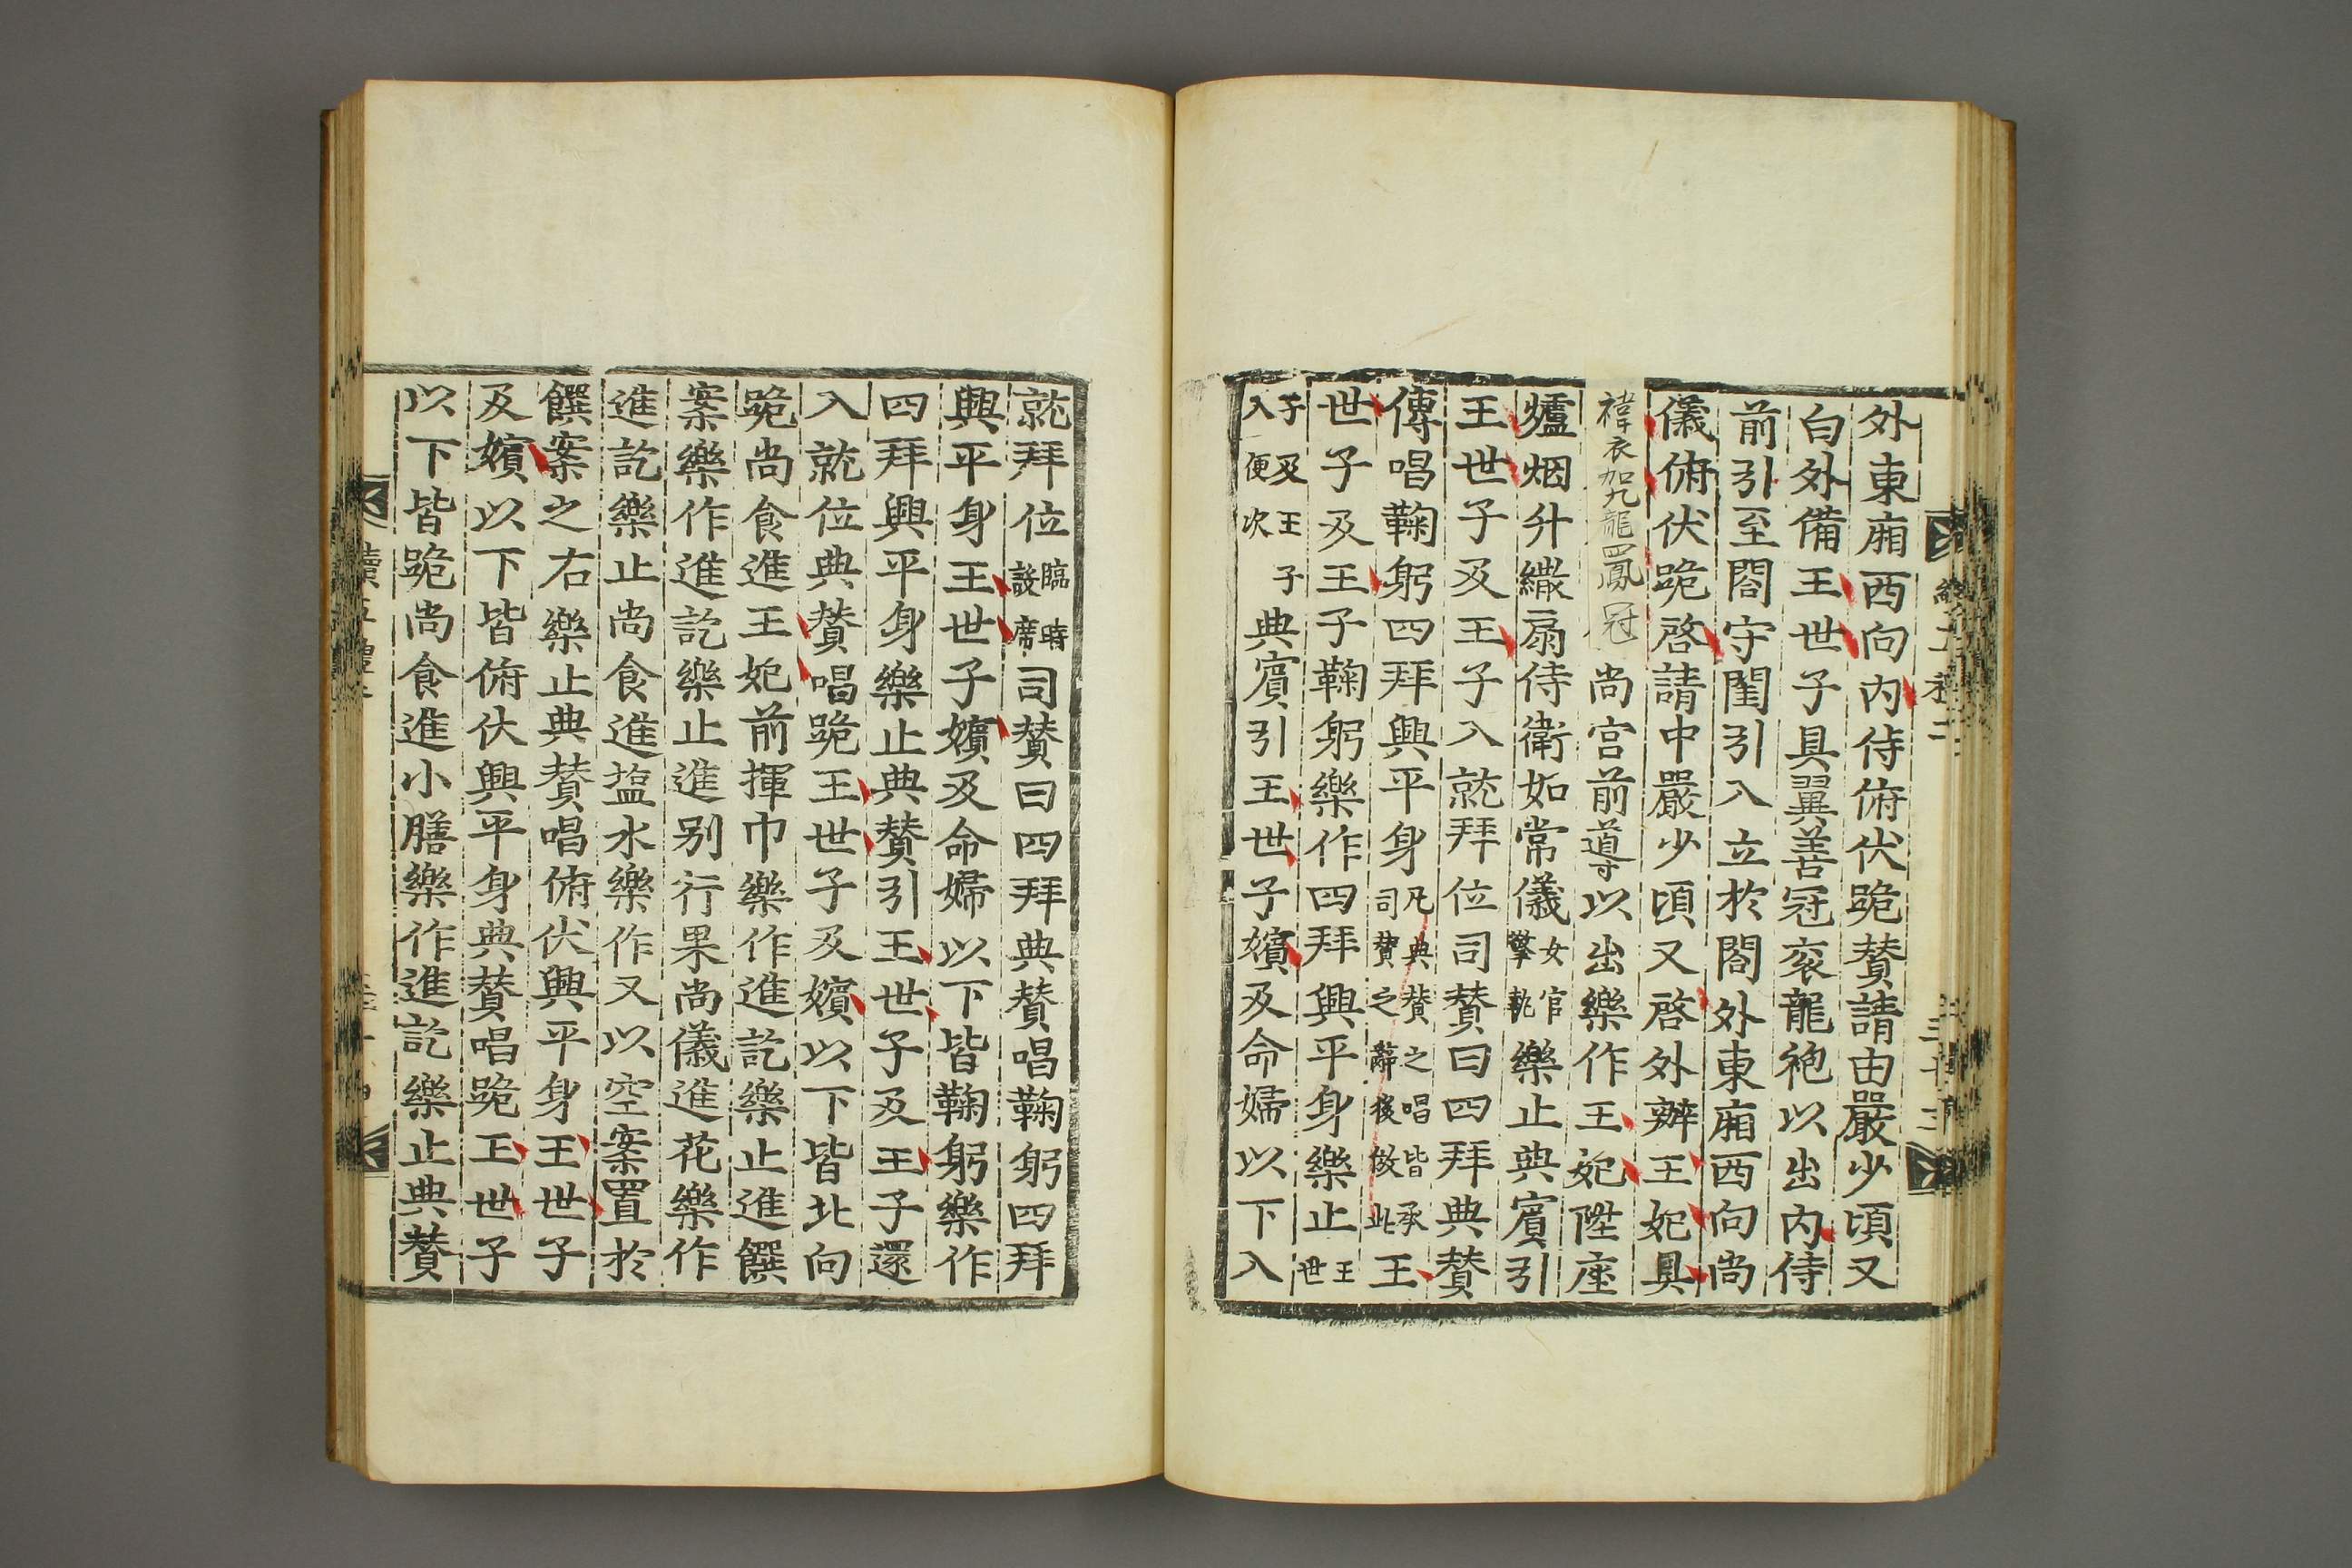 外東廂西向內侍俯伏跪贊請由嚴少頃又
白外備王世子具翼善冠袞龍袍以出內侍
前引至閤守閨引入立於閤外東廂西向尚
儀俯伏跪啓請中嚴少頃又啓外辦王妃具
褘衣加九龍四鳳冠尚宮前導以出樂作王妃陞座
爐烟升繖扇侍衛如常儀女官擎執樂止典賓引
王世子及王子入就拜位司贊曰四拜典贊
傳唱鞠躬四拜興平身凡典贊之唱皆承司贊之辭後倣此王
世子及王子鞠躬樂作四拜興平身樂止王世
子及王子入便次典賓引王世子嬪及命婦以下入
就拜位臨時設席司贊曰四拜典贊唱鞠躬四拜
興平身王世子嬪及命婦以下皆鞠躬樂作
四拜興平身樂止典贊引王世子及王子還
入就位典贊唱跪王世子及嬪以下皆北向
跪尚食進王妃前揮巾樂作進訖樂止進饌
案樂作進訖樂止進別行果尚儀進花樂作
進訖樂止尚食進塩水樂作又以空案置於
饌案之右樂止典贊唱俯伏興平身王世子
及嬪以下皆俯伏興平身典贊唱跪王世子
以下皆跪尚食進小膳樂作進訖樂止典贊